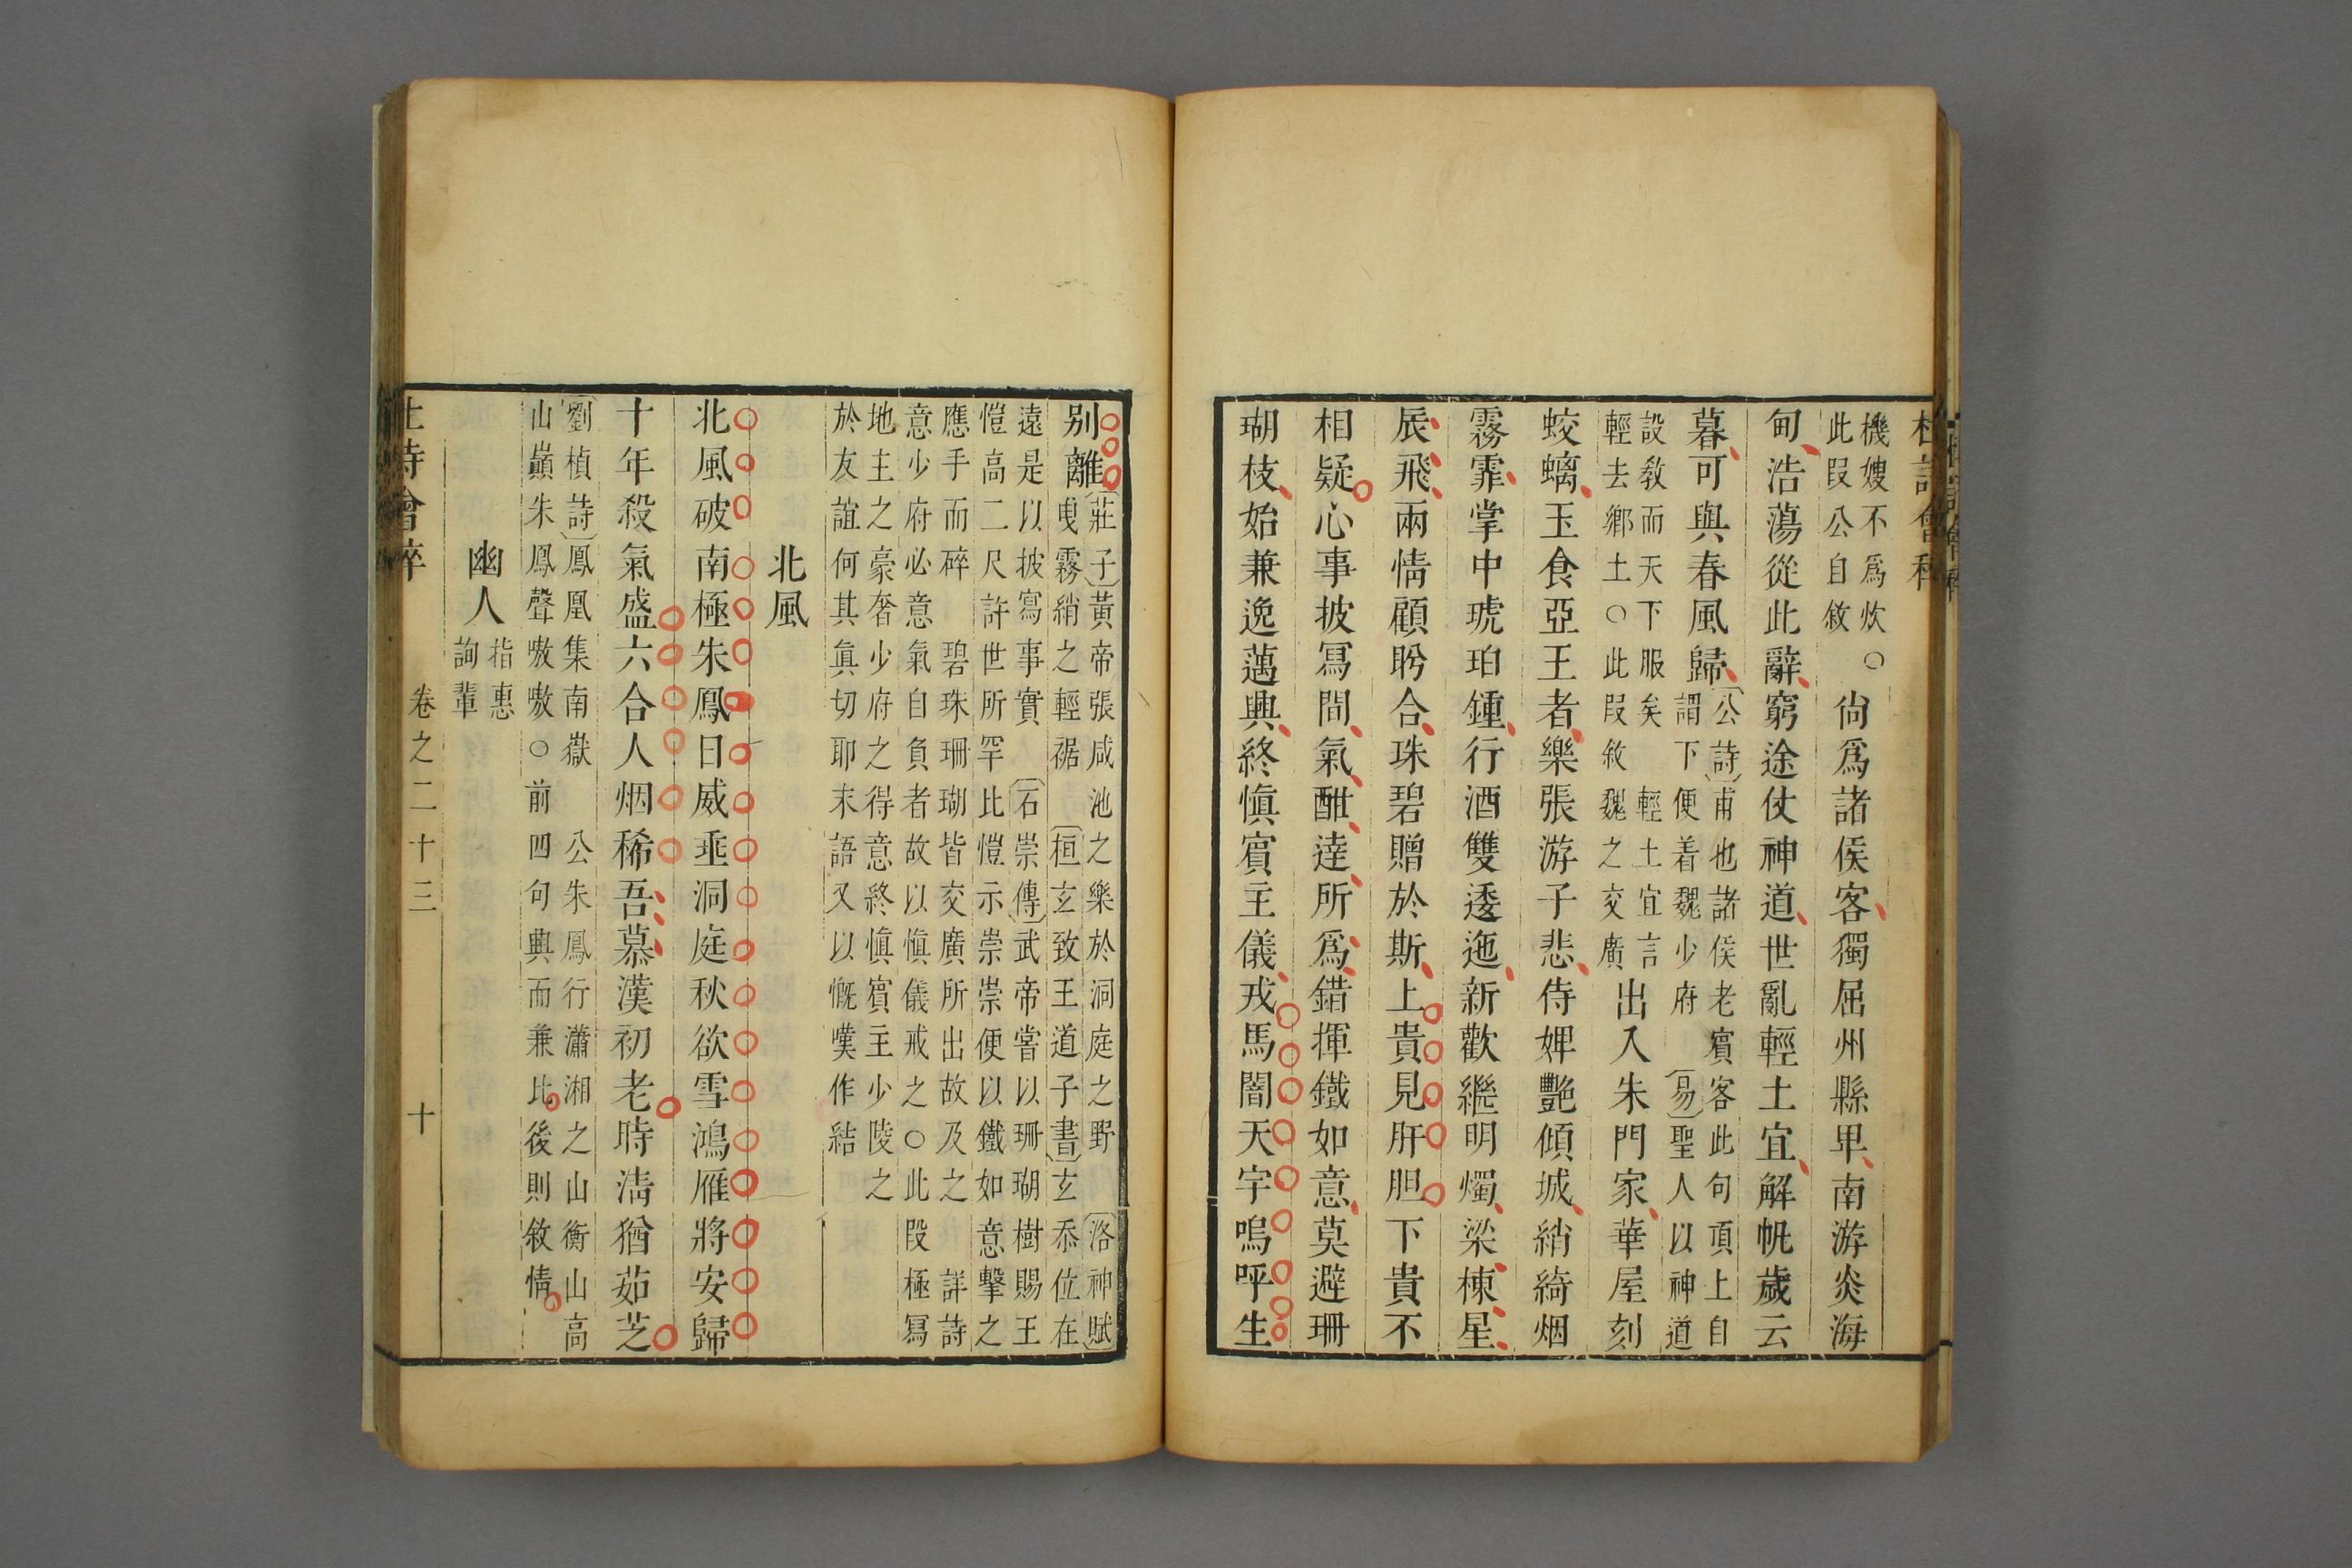 杜詩會稡
機嫂不爲炊○
此叚公自敘
尙爲諸侯客獨屈州縣𤰞南游炎海
甸浩蕩從此辭窮途仗神道世亂輕土宜解帆歲云
暮可與春風歸
〔公詩〕甫也諸侯老賓客此句頂上自
謂下便着魏少府
〔易〕聖人以神道
設敎而天下服矣 輕土宜言
輕去鄉土○此叚敘魏之交廣
出入朱門家華屋刻
蛟螭玉食亞王者樂張游子悲侍婢艷傾城綃綺烟
霧霏掌中琥珀鍾行酒雙逶迤新歡繼明燭梁棟星
辰飛兩情顧盻合珠碧贈於斯上貴見肝胆下貴不
相疑心事披冩間氣酣達所爲錯揮鐵如意莫避珊
瑚枝始兼逸邁興終愼賓主儀戎馬闇天宇嗚呼生
别離
〔莊子〕黃帝張咸池之樂於洞庭之野 〔洛神賦〕
曳霧綃之輕裾 〔桓玄致王道子書〕玄忝位在
遠是以披寫事實 〔石崇傳〕武帝嘗以珊瑚樹賜王
愷高二尺許世所罕比愷示崇崇便以鐵如意擊之
應手而碎 碧珠珊瑚皆交廣所出故及之 詳詩
意少府必意氣自負者故以愼儀戒之○此叚極冩
地主之豪奢少府之得意終愼賓主少陵之
於友誼何其眞切耶末語又以慨嘆作結
北風
北風破南極朱鳳日威垂洞庭秋欲雪鴻雁將安歸
十年殺氣盛六合人烟稀吾慕漢初老時淸猶茹芝
〔劉楨詩〕鳳凰集南嶽 公朱鳳行瀟湘之山衡山高
山巔朱鳳聲嗷嗷○前四句興而兼比後則敘情
幽人
指惠
詢輩
杜詩會稡 卷之二十三 十